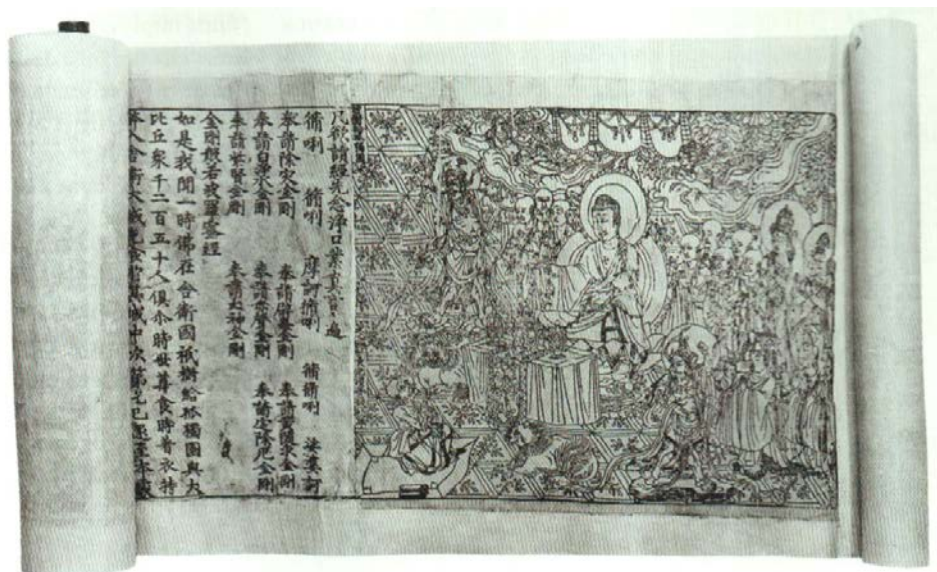 凡欲讀經先念淨口業真言一遍
脩唎 脩唎 摩訶脩唎 脩脩唎 娑婆訶
奉請除灾金剛 奉請辟毒金剛 奉請黄隨求金剛
奉請白淨水金剛 奉請赤聲金剛 奉請定除厄金剛
奉請紫賢金剛 奉請大神金剛
金剛般若波羅蜜經
如是我聞一時佛在舍衛國祇樹給孤獨園與大
比丘衆千二百五十人俱尒時世尊食時着衣持
鉢入舍衛大城乞食於其城中次第乞已還至本處